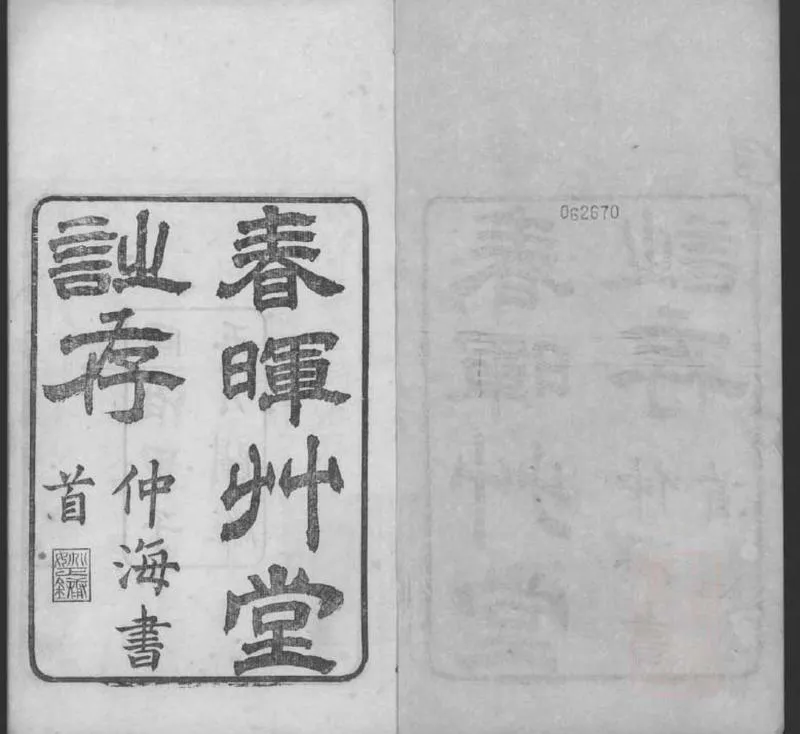 春暉艸堂
訨存
仲海書
首
062670